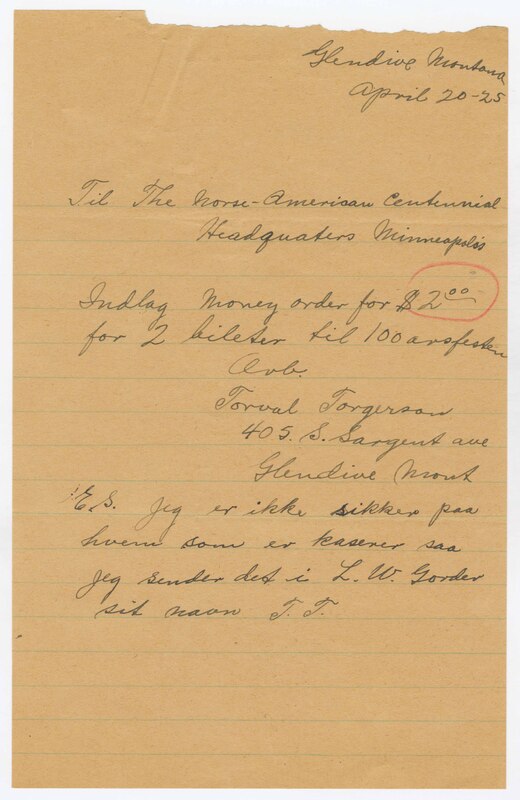 Glendive Montana
April 20-25
Til The Norse-American Centennial
Headquaters Minneapolis
Indlag Money order for $2.00
for 2 bileter til 100 arsfesten
Arb.
Torval Torgerson
405. S. Sargent ave
Glendive Mont
E.S. Jeg er ikke sikker paa
hvem som er kaserer saa
jeg sender det i L. W. Gorder
sit navn T. T.